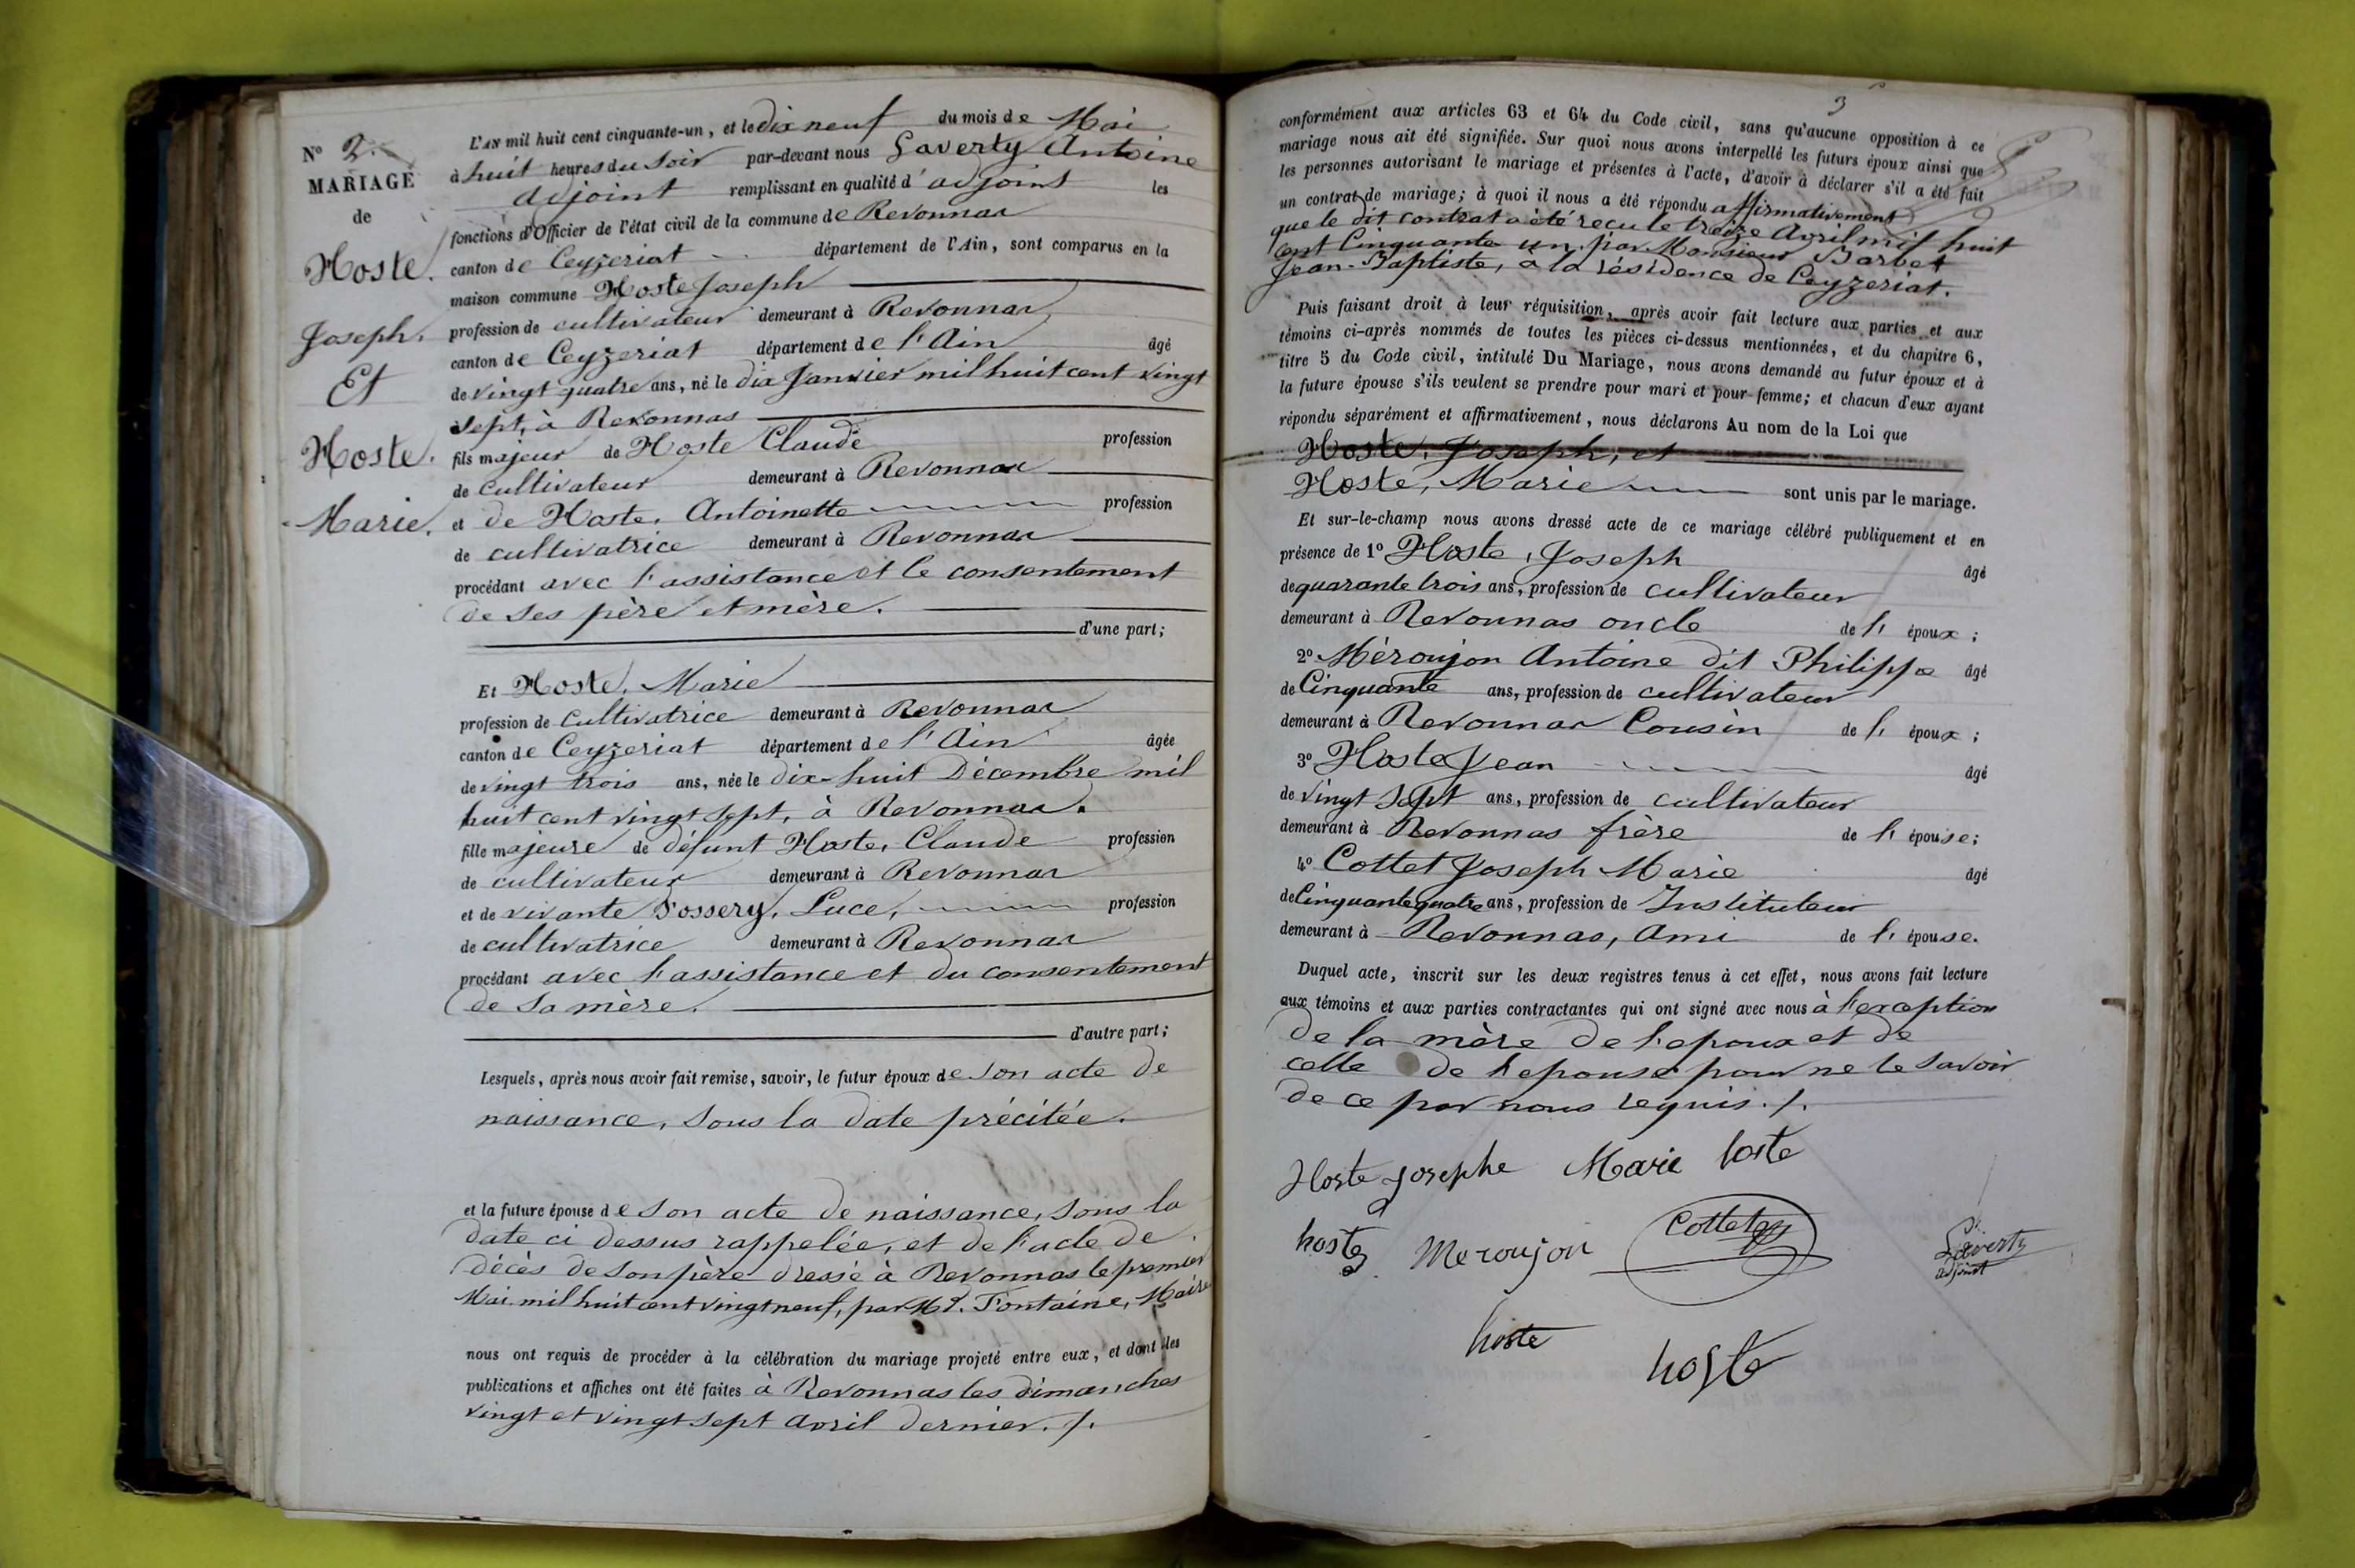 N° 2.
MARIAGE
de
Hoste.
Joseph.
Et
Hoste.
Marie.
L'AN mil huit cent cinquante-un, et le dix neuf du mois de Mai
à huit heures du Soir par-devant nous Laverty Antoine
adjoint remplissant en qualité d'adjoint les
fonctions d'Officier de l'état civil de la commune de Revonnas
canton de Ceyzeriat département de l'Ain, sont comparus en la
maison commune Hoste Joseph
profession de cultivateur demeurant à Revonnas,
canton de Ceyzeriat département de l'Ain âgé
de vingt quatre ans, né le dix Janvier mil huit cent vingt
sept, à Revonnas
fils majeur de Hoste Claude profession
de cultivateur demeurant à Revonnas
et de Hoste, Antoinette profession
de cultivatrice demeurant à Revonnas
procédant avec l'assistance et le consentement
de ses père et mère.
d'une part;
Et Hoste, Marie
profession de cultivatrice demeurant à Revonnas
canton de Ceyzeriat département de l'Ain âgée
de vingt trois ans, née le dix-huit Décembre mil
huit cent vingt sept, à Revonnas.
fille majeure de défunt Hoste, Claude profession
de cultivateur demeurant à Revonnas
et de vivante Fossery, Luce, profession
de cultivatrice demeurant à Revonnas
procédant avec l'assistance et du consentement
de sa mère.
d'autre part;
Lesquels, après nous avoir fait remise, savoir, le futur époux de son acte de
naissance, sous la date précitée.
et la future épouse de son acte de naissance, sous la
date ci dessus rappelée, et de l'acte de
décès de son père dressé à Revonnas le premier
Mai mil huit cent vingt neuf, par Mr. Fontaine, Maire
nous ont requis de procéder à la célébration du mariage projeté entre eux, et dont les
publications et affiches ont été faites à Revonnas les dimanches
vingt et vingt sept avril dernier. /.
3
conformément aux articles 63 et 64 du Code civil, sans qu'aucune opposition à ce
mariage nous ait été signifiée. Sur quoi nous avons interpellé les futurs époux ainsi que
les personnes autorisant le mariage et présentes à l'acte, d'avoir à déclarer s'il a été fait
un contrat de mariage; à quoi il nous a été répondu affirmativement
que le dit contrat a été reçu le treize Avril mil huit
cent Cinquante un par Monsieur Barbet
Jean-Baptiste, à la résidence de Ceyzeriat.
Puis faisant droit à leur réquisition, après avoir fait lecture aux parties et aux
témoins ci-après nommés de toutes les pièces ci-dessus mentionnées, et du chapitre 6,
titre 5 du Code civil, intitulé Du Mariage, nous avons demandé au futur époux et à
la future épouse s'ils veulent se prendre pour mari et pour femme; et chacun d'eux ayant
répondu séparément et affirmativement, nous déclarons Au nom de la Loi que
Hoste, Joseph, et
Hoste, Marie sont unis par le mariage.
Et sur-le-champ nous avons dressé acte de ce mariage célébré publiquement et en
présence de 1° Hoste, Joseph âgé
de quarante trois ans, profession de cultivateur
demeurant à Revonnas oncle de l'époux;
2° Méroujon Antoine dit Philippe âgé
de Cinquante ans, profession de cultivateur
demeurant à Revonnas Cousin de l'époux;
3° Hoste Jean âgé
de vingt sept ans, profession de cultivateur
demeurant à Revonnas frère de l'épouse;
4° Cottet Joseph Marie âgé
de Cinquante quatre ans, profession de Instituteur
demeurant à Revonnas, Ami de l'épouse.
Duquel acte, inscrit sur les deux registres tenus à cet effet, nous avons fait lecture
aux témoins et aux parties contractantes qui ont signé avec nous à l'exception
de la mère de l'epoux et de
celle de l'epouse pour ne le savoir
de ce par nous requis. /.
Hoste josephe Marie hoste
hoste Meroujon Cottet Laverty
adjoint
hoste hoste